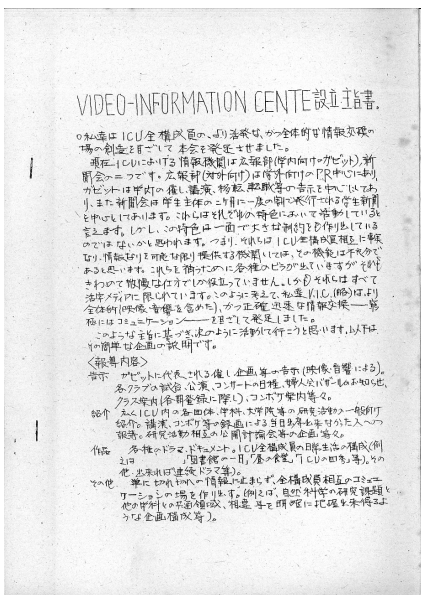 VIDEO-INFORMATION CENTE設立主旨書。
○私達はICU全構成員の、より活発な、かつ全体的な情報交換の
場の創造を目ざして本会を発足させました。
現在ICUにおける情報機関は広報部(学内向けのガゼット)、新
聞会の二つです。広報部(対外向け)は学外向けのPR中心にあり、
ガゼットは学内の催し、講演、等の告示を中心としてあ
り、また新聞会は学生主体の二ヶ月に一度の割で発行される学生新聞
を中心としております。これらはそれぞれの特色において活動していると
言えます。しかし、この特色は一面で大きな制約をも作り出している
のではないかと思われます。つまり、それらはICU全構成員相互に
なり、情報を可能な限り提供する機関としては、その機能は不充分で
あると思います。これらを補うために各種のビラが出ていますが それも
きわめて散慢な仕方でしか役立っていません。しかもそれらはすべて
活字メディアに限られています。このように考えて、私達V.I.C.(略)は、より
全体的(映像・音響を含めた)、かつ正確迅速な情報交換──
極にはコミュニケーション──を目ざして発足しました。
このような主旨に基づき、次のように活動して行こうと思います。以下は
その簡単な企画の説明です。
〈報道内容〉
告示 ガゼットに代表される催し企画等の告示(映像・音響による)。
各クラブの試合、公演、コンサートの日程、婦人会バザールのお知らせ、
クラス案内(各期登録に際し)、コンボケ案内等々。
紹介 広くICU内の各団体、学科、大学院等の研究活動の一般向け
紹介と講演、コンボケ等の録画による当日出席出来なかった人への
報道。研究活動相互の公開討論会等の企画等々。
作品 各種のドラマ、ドキュメント。ICU全構成員の日常生活の構成(例
えば 「図書館の一日」「昼の食堂」「ICUの四季」等)。その
他、出来れば連続ドラマ等)。
その他 単に切れ切れの情報に止まらず、全構成員相互のコミュニ
ケーションの場を作り出す。(例えば、自然科学の研究課題と
他の学科との共通領域、相違等を明確に把握出来得るよ
うな企画構成等)。